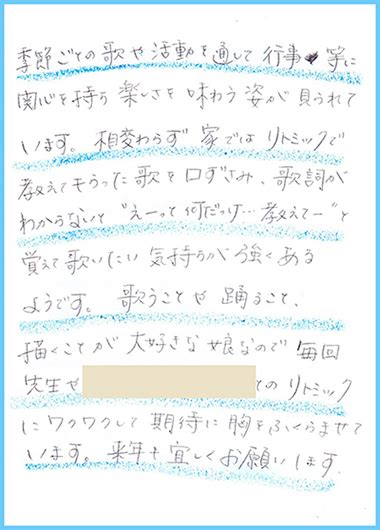 季節ごとの歌や活動を通して行事等に
関心を持ち楽しさを味わう姿が見うれて
います。相変わらず家ではリトミックで
教えてもらった歌を口ずさみ、歌詞が
わからないと"えーって何だっけ…教えてー"と
覚えて歌いたい気持ちが強くある
ようです。歌うことや踊ること、
描くことが大好きな娘なので毎回
先生や
でのリトミック
にワクワクして期待に胸をふくらませて
います。来年も宜しくお願いします。